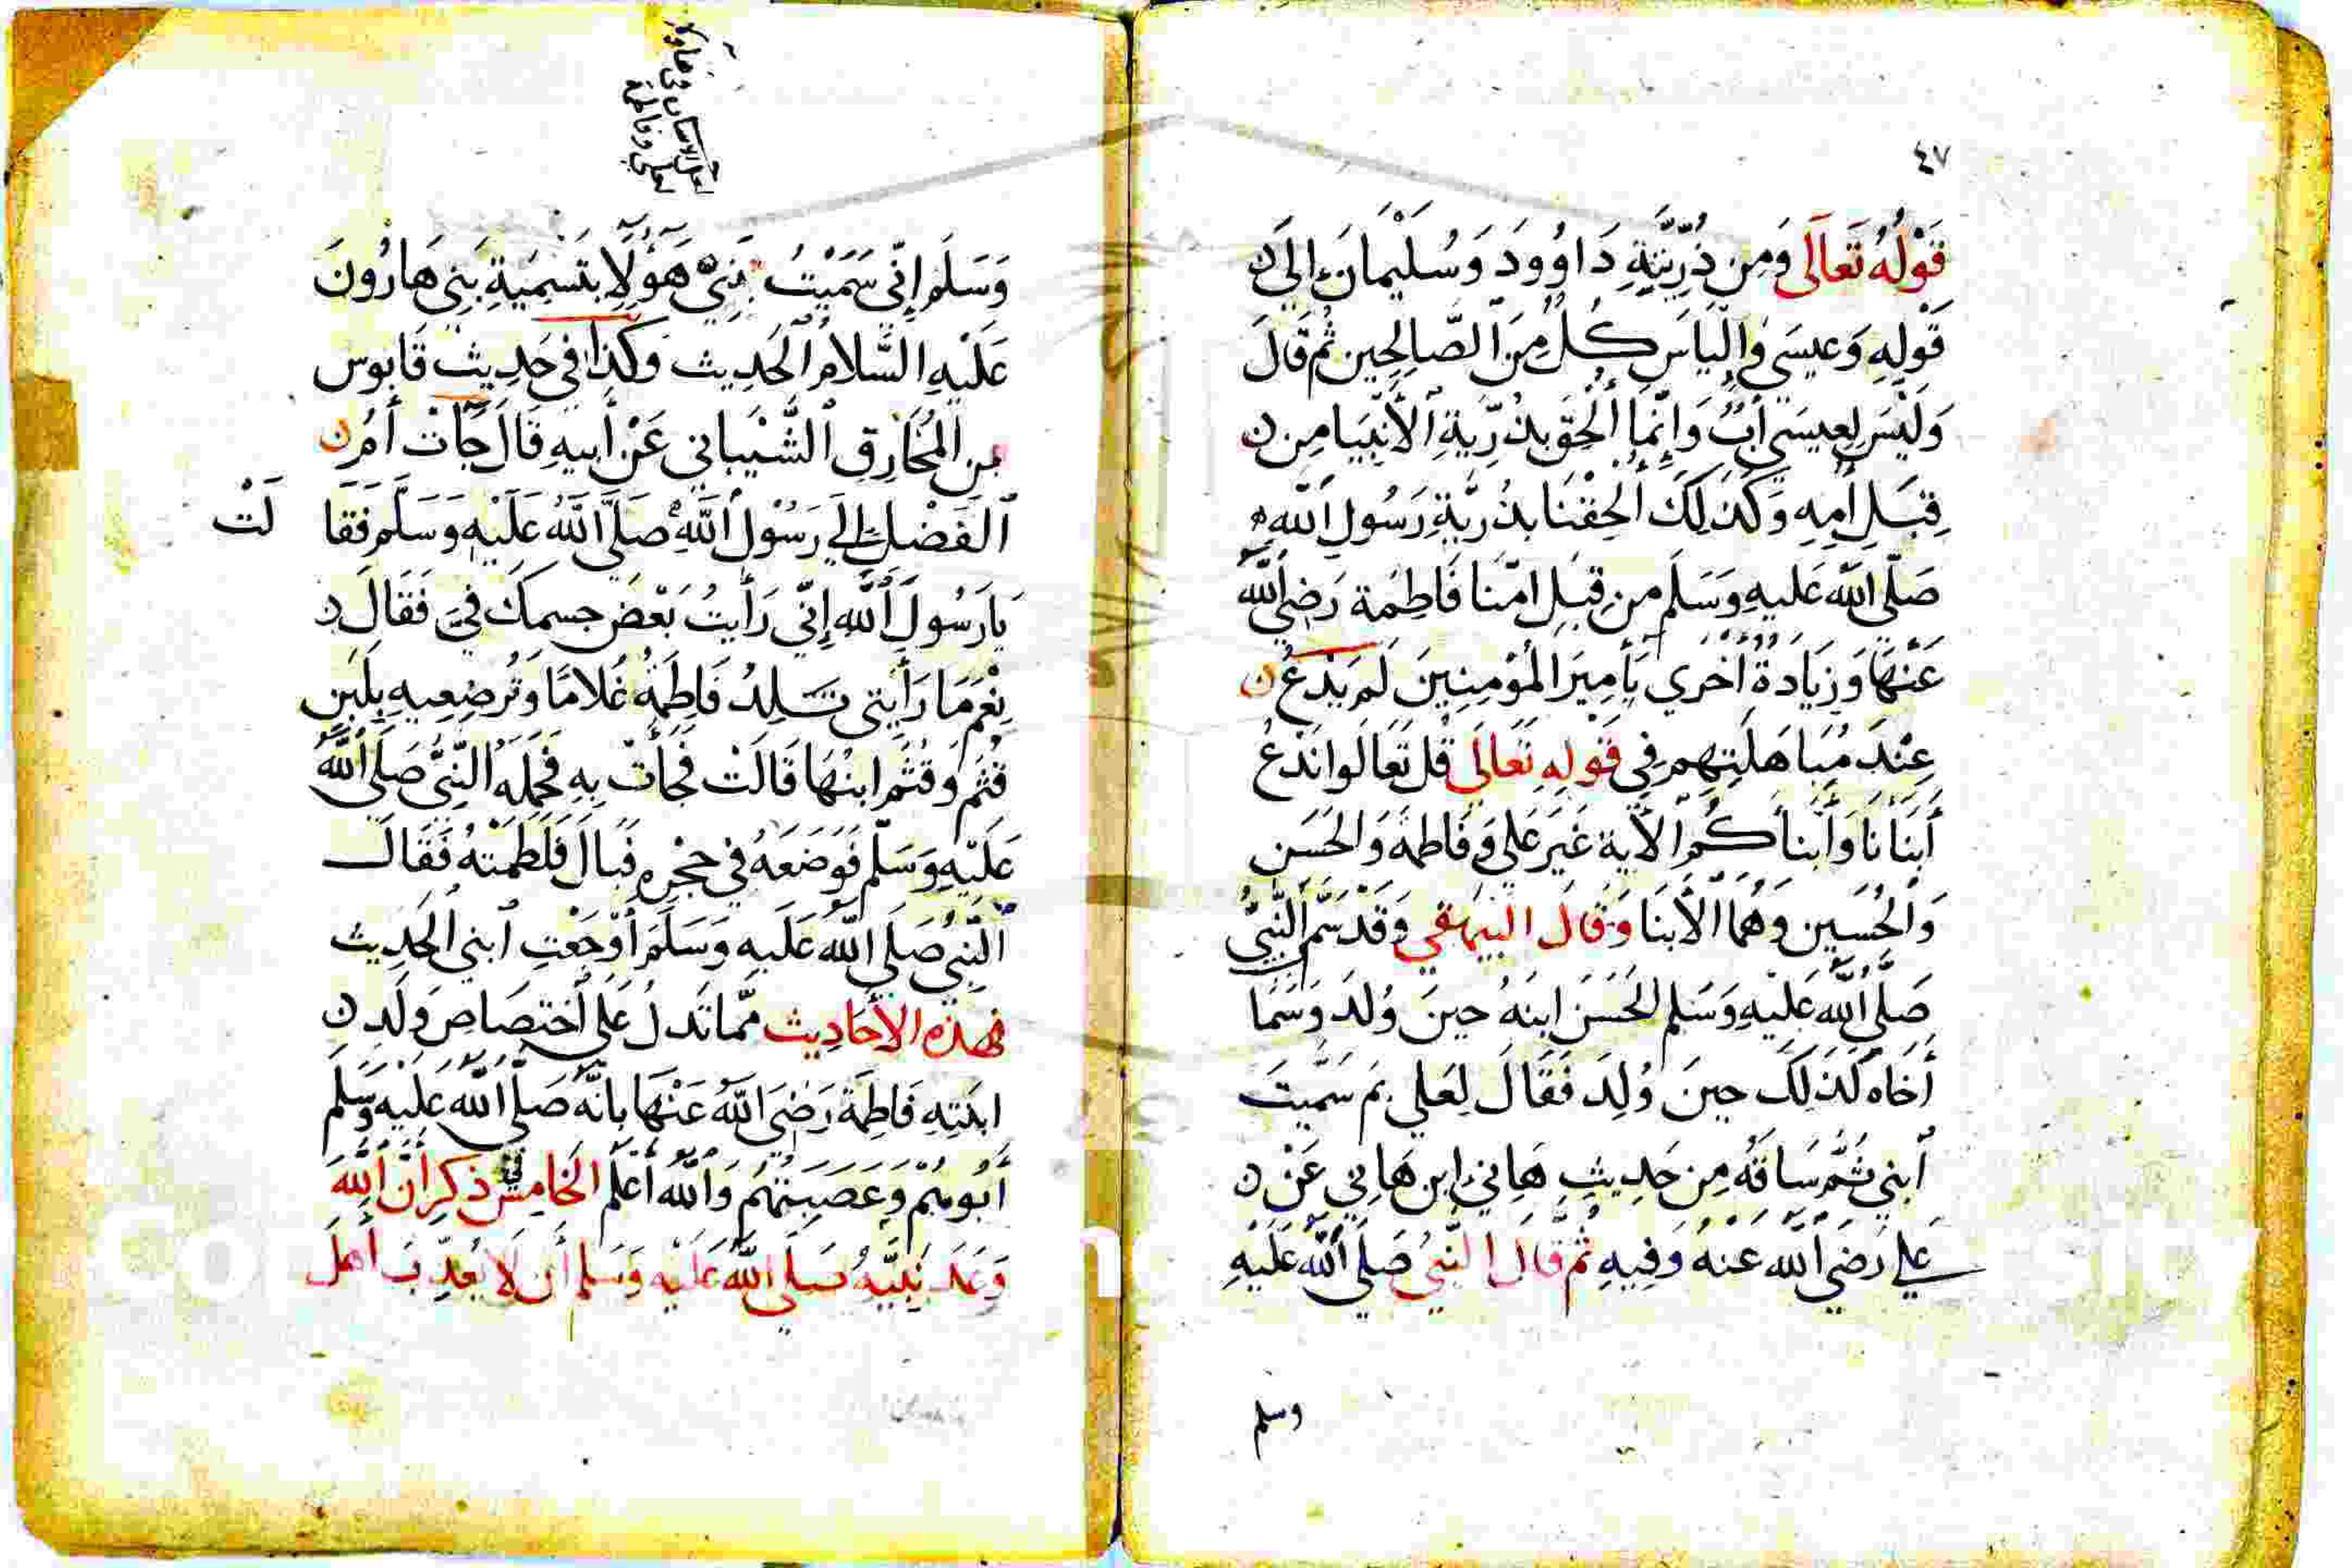 ٤٧
قَوْلُهُ تَعَالَى وَمِن ذُرِّيَّتِهِ دَاوُودَ وَسُلَيْمَانَ إِلَى
قَوْلِهِ وَعِيسَى وَإِلْيَاسَ كُلٌّ مِنَ الصَّالِحِين ثُمَّ قَالَ
وَلَيْسَ لِعِيسَى أَبٌ وَإِنَّمَا أُلْحِقَ بِذُرِّيَةِ الْأَنْبِيَا مِن
قِبَلِ أُمِهِ وَكَذَلِكَ أُلْحِقْنَا بِذُرِّيَّةِ رَسُولِ اللَّهِ
صَلَّى اللَّه عَلَيهِ وَسَلَم مِن قِبَلِ امِّنَا فَاطِمَة رَضِي اللَّه
عَنْهَا وَزِيَادَةٌ أُخْرَى يَأَمِيرَ الْمُؤْمِنِينَ لَمْ يَدْعُ
عِنْدَ مُبَاهَلَتِهِم فِي قَوْلِهِ تَعَالَى قُل تَعَالَوا نَدْعُ
أَبْنَانَا وَأَبْنَاكُم الْأيَة غَيْرَ عَلِي وَفَاطِمَةَ وَالحَسَن
وَالحُسَين وَهُمَا الْأَبْنَا وَقَالَ البَيهَقِي وَقَدْ سَمَّ النَّبِيُّ
صَلَّى اللَّه عَلَيْهِ وَسَلم الحَسَنَ ابنَهُ حِينَ وُلدَ وَسَمَا
أَخَاه كَذَلِكَ حِينَ وُلِدَ فَقَالَ لِعَلي بِمَ سَمَّيتَ
ابني ثُمَّ سَاقَهُ مِن حَدِيثِ هَانِي ابن هَانِي عَنْ
عَلي رَضِيَ اللَّه عَنْهُ وَفِيهِ ثُمَّ قَالَ النَّبِيُّ صَلَّى اللَّه عَلَيْهِ
وسلم
وَسَلَم إِنِّي سَمَّيْتُ بَنِيَّ هَؤُلَا بِتَسْمِيَةِ بَنِي هَارُونَ
عَلَيْهِ السَّلَامُ الحَدِيث وَكَذَا فِي حَدِيثِ قَابُوس
بن المُخَارِقِ الشَّيْبَانِي عَنْ أَبِيهِ قَالَ جَّاتْ أُمُّ
الفَضْلِ إِلَى رَسُوْل اللَّهِ صَلَّى اللَّهُ عَلَيْهِ وَسَلَّمَ فَقَا لَتْ
يَا رَسُولَ اللَّه إِنِّي رَأَيتُ بَعْضَ جِسمِكَ فِيَّ فَقَالَ
نِعْمَ مَا رَأَيتي تَلِدُ فَاطِمَةُ غُلَامًا وَتُرضِعِيهِ بِلَبَنِ
قُثَم وَقُثَم ابنُهَا قَالَتْ فَجَأتْ بِهِ فَحَمَلَهُ النَّبِيُّ صَلَى اللَّه
عَلَيْهِ وَسَلَّم فَوَضَعَهُ فِي حِجْرِه فَبَالَ فَلَطَمَتْهُ فَقَالَ
النَّبِيُّ صَلَى اللَّه عَلَيهِ وَسَلَمَ أَوْجَعْتِ ابني الحَدِيث
فهذه الأحَادِيث مِمَّا تَدلُ عَلَى اخْتِصَاص وَلَدِ
ابنَتِهِ فَاطِمَة رَضِيَ اللَّهُ عَنْهَا بِأنَّهُ صَلَّى اللَّه عَلَيْهِ وَسَلَّم
أَبُوهُمْ وَعَصَبَتُهُم وَاللَّه أَعْلَم الخَامِس في ذِكرِ أَنَّ اللَّهَ
وَعَدَ نَبِيَّهُ صَلَى اللَّهُ عَلَيْه وَسَلم أَن لَا يُعَذِّبَ أَهلَ